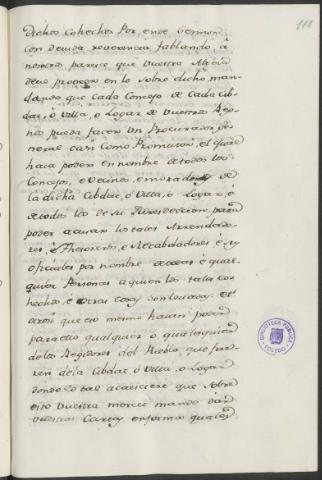 111
dichos Cohechos Por ende Señor
con devida reverencia fablando, á
nosotros parece que vuestra Alteza
deve proveer en lo sobre dicho man-
dando que cada Concejo de Cada Cib-
dad, ó Villa, o Logar de vuestros Reg-
nos pueda facer un Procurador ge-
neral casi como Promutor, el qual
haya poder en nombre de todos los
Concejos, e vecinos, e moradores de
la dicha Cibdad, ó Villa, o Logar, é
de todos los de su Jurisdiccion, para
poder acusar los tales Arrendado-
res, é Thesoreros, é Recabdadores é
oficiales por nombre é qual-
quier Personas a quien los tales co-
hechos, é otras cosas
que eso mesmo hayan poder
para ello qualquier ó qualesquier
de los Regidores del Pueblo que fue-
ren de la Cibdad, ó Villa, o Logar
donde lo tal acaesciere que sobre
esto vuestra merced mande dar
vuestras Cartas en forma quales
BIBLIOTECA PUBLICA
TOLEDO